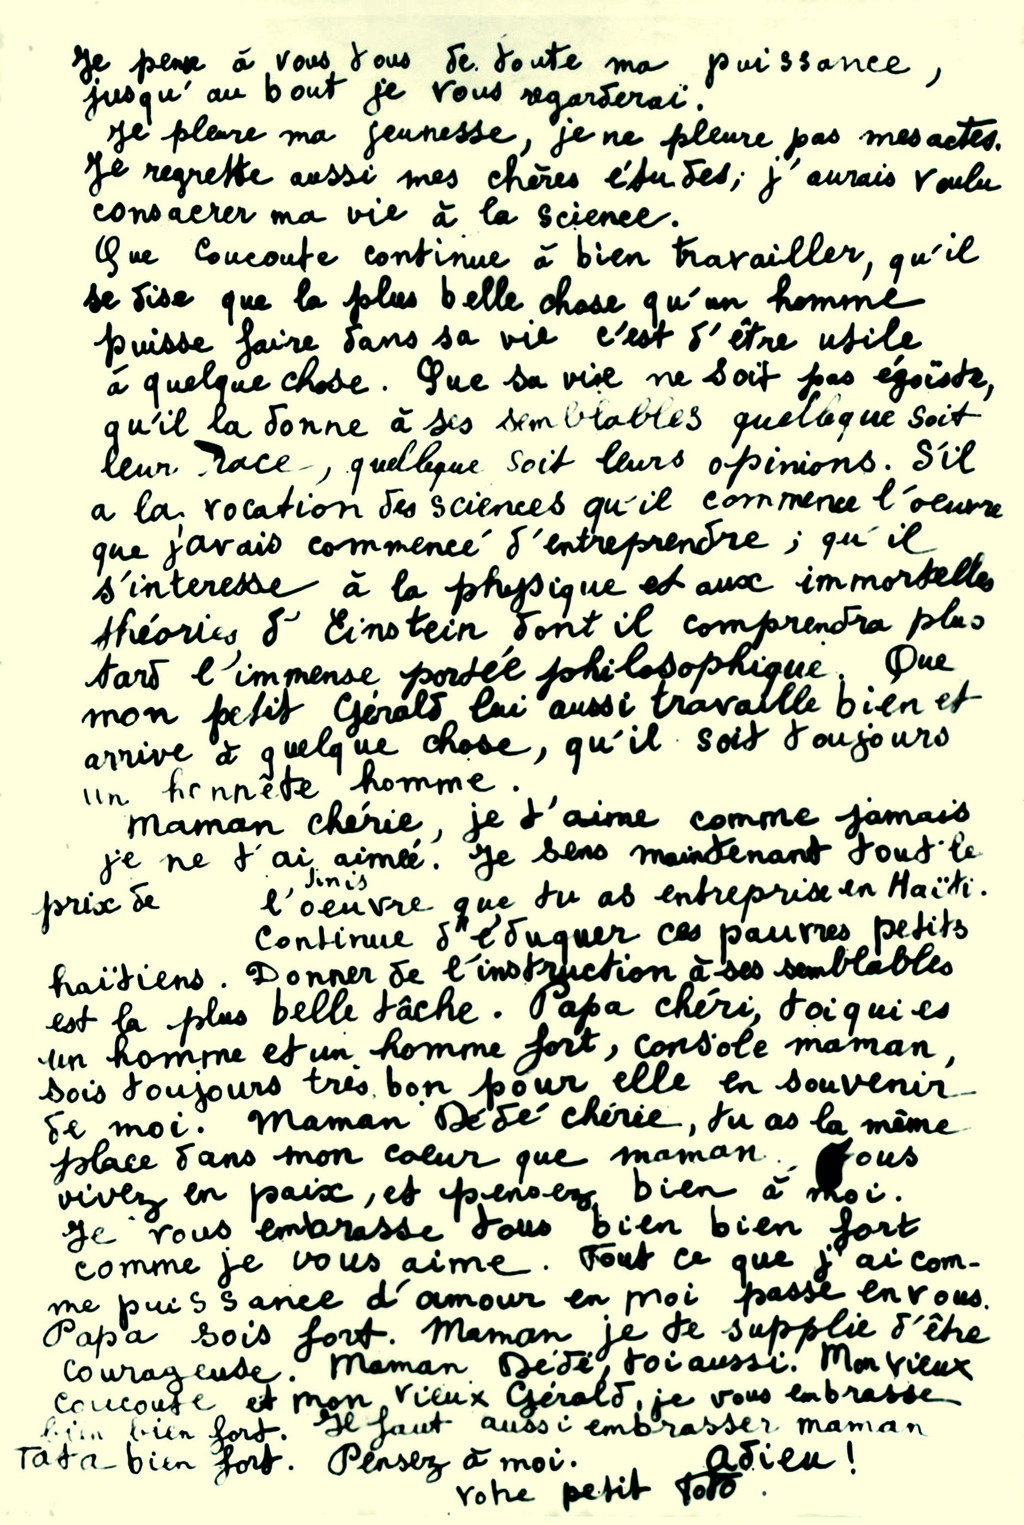 Je pense à vous tous de toute ma puissance,
jusqu'au bout je vous regarderai.
Je pleure ma jeunesse, je ne pleure pas mes actes.
Je regrette aussi mes chères études; j'aurais voulu
consacrer ma vie à la science.
Que Coucoute continue à bien travailler, qu'il
se dise que la plus belle chose qu'un homme
puisse faire dans sa vie c'est d'être utile
à quelque chose. Que sa vie ne soit pas égoïste,
qu'il la donne à ses semblables quelleque soit
leur race, quelleque soit leurs opinions. S'il
a la vocation des sciences qu'il commence l'oeuvre
que j'avais commencé d'entreprendre; qu'il
s'interesse à la physique et aux immortelles
théories d'Einstein dont il comprendra plus
tard l'immense portée philosophique. Que
mon petit Gérald lui aussi travaille bien et
arrive à quelque chose, qu'il soit toujours
un honnête homme.
Maman chérie, je t'aime comme jamais
je ne t'ai aimée. Je sens maintenant tout le
prix de l'oeuvre que tu as entreprise en Haïti.
Continue d'éduquer ces pauvres petits
haïtiens. Donner de l'instruction à ses semblables
est la plus belle tâche. Papa chéri, toi qui es
un homme et un homme fort, console maman,
sois toujours très bon pour elle en souvenir
de moi. Maman Dédé chérie, tu as la même
place dans mon coeur que maman. Tous
vivez en paix, et pensez bien à moi.
Je vous embrasse tous bien bien fort
comme je vous aime. Tout ce que j'ai com-
me puissance d'amour en moi passe en vous.
Papa sois fort. Maman je te supplie d'être
courageuse. Maman Dédé, toi aussi. Mon vieux
coucoute et mon vieux Gérald, je vous embrasse
bien bien fort. Il faut aussi embrasser maman
Tata bien fort. Pensez à moi. Adieu!
Votre petit Toto.